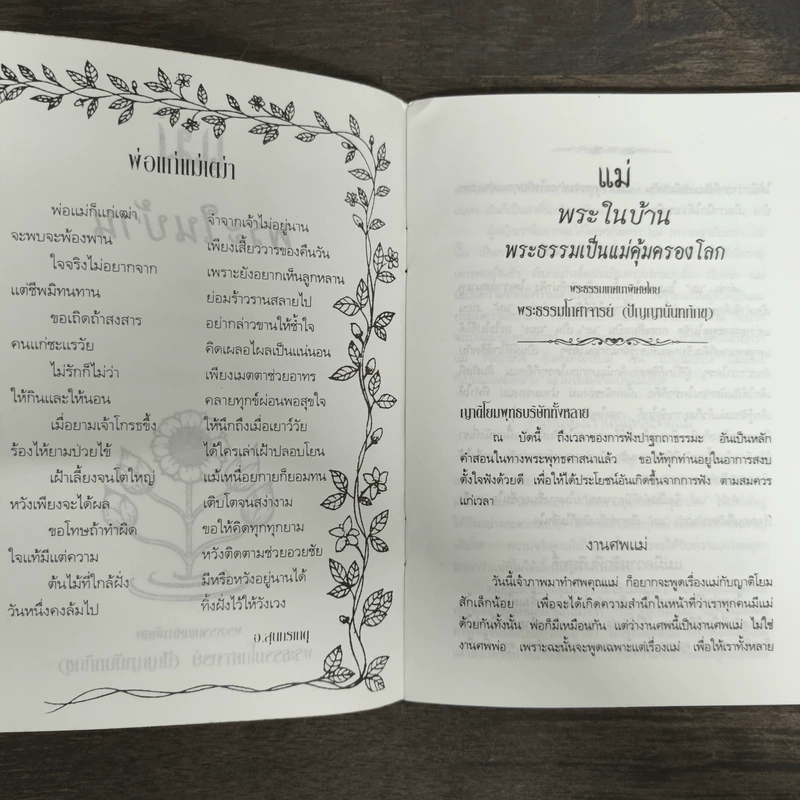 พ่อแก่แม่เฒ่า
พ่อแม่ก็แก่เฒ่า จำจากเจ้าไม่อยู่นาน
จะพบจะพ้องพาน เพียงเสี้ยววารของคืนวัน
ใจจริงไม่อยากจาก เพราะยังอยากเห็นลูกหลาน
แต่ชีพมิทนทาน ย่อมร้าวรานสลายไป
ขอเถิดถ้าสงสาร อย่ากล่าวขานให้ช้ำใจ
คนแก่ชะแรวัย คิดเผลอไผลเป็นแน่นอน
ไม่รักก็ไม่ว่า เพียงเมตตาช่วยอาทร
ให้กินและให้นอน คลายทุกข์ผ่อนพอสุขใจ
เมื่อยามเจ้าโกรธขึ้ง ให้นึกถึงเมื่อเยาว์วัย
ร้องไห้ยามป่วยไข้ ได้ใครเล่าเฝ้าปลอบโยน
เฝ้าเลี้ยงจนโตใหญ่ แม้เหนื่อยกายก็ยอมทน
หวังเพียงจะได้ผล เติบโตจนสง่างาม
ขอโทษถ้าทำผิด ขอให้คิดทุกทุกยาม
ใจแท้มีแต่ความ หวังติดตามช่วยอวยชัย
ต้นไม้ที่ใกล้ฝั่ง มีหรือหวังอยู่นานได้
วันหนึ่งคงล้มไป ทิ้งฝั่งไว้ให้วังเวง
อ.สุนทรเกตุ
แม่
พระในบ้าน
พระธรรมเป็นแม่คุ้มครองโลก
พระธรรมเทศนาพิเศษโดย
พระธรรมโกศาจารย์ (ปัญญานันทภิกขุ)
ญาติโยมพุทธบริษัททั้งหลาย
ณ บัดนี้ ถึงเวลาของการฟังปาฐกถาธรรมะ อันเป็นหลัก
คำสอนในทางพระพุทธศาสนาแล้ว ขอให้ทุกท่านอยู่ในอาการสงบ
ตั้งใจฟังด้วยดี เพื่อให้ได้ประโยชน์อันเกิดขึ้นจากการฟัง ตามสมควร
แก่เวลา
งานศพแม่
วันนี้เจ้าภาพมาทำศพคุณแม่ ก็อยากจะพูดเรื่องแม่กับญาติโยม
สักเล็กน้อย เพื่อจะได้เกิดความสำนึกในหน้าที่ว่าเราทุกคนมีแม่
ด้วยกันทั้งนั้น พ่อก็มีเหมือนกัน แต่ว่างานศพนี้เป็นงานศพแม่ ไม่ใช่
งานศพพ่อ เพราะฉะนั้นจะพูดเฉพาะแต่เรื่องแม่ เพื่อให้เราทั้งหลาย